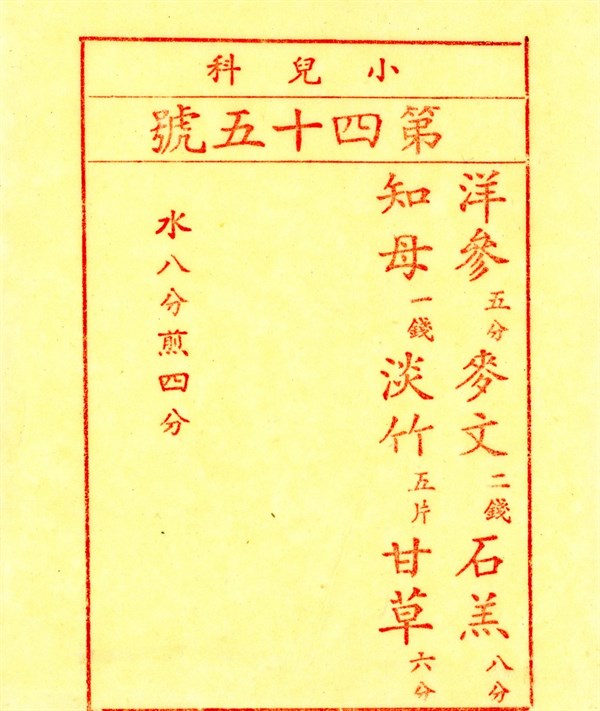 小兒科
第四十五號
洋參五分麥文二錢石羔八分
知母一錢淡竹五片甘草六分
水八分煎四分